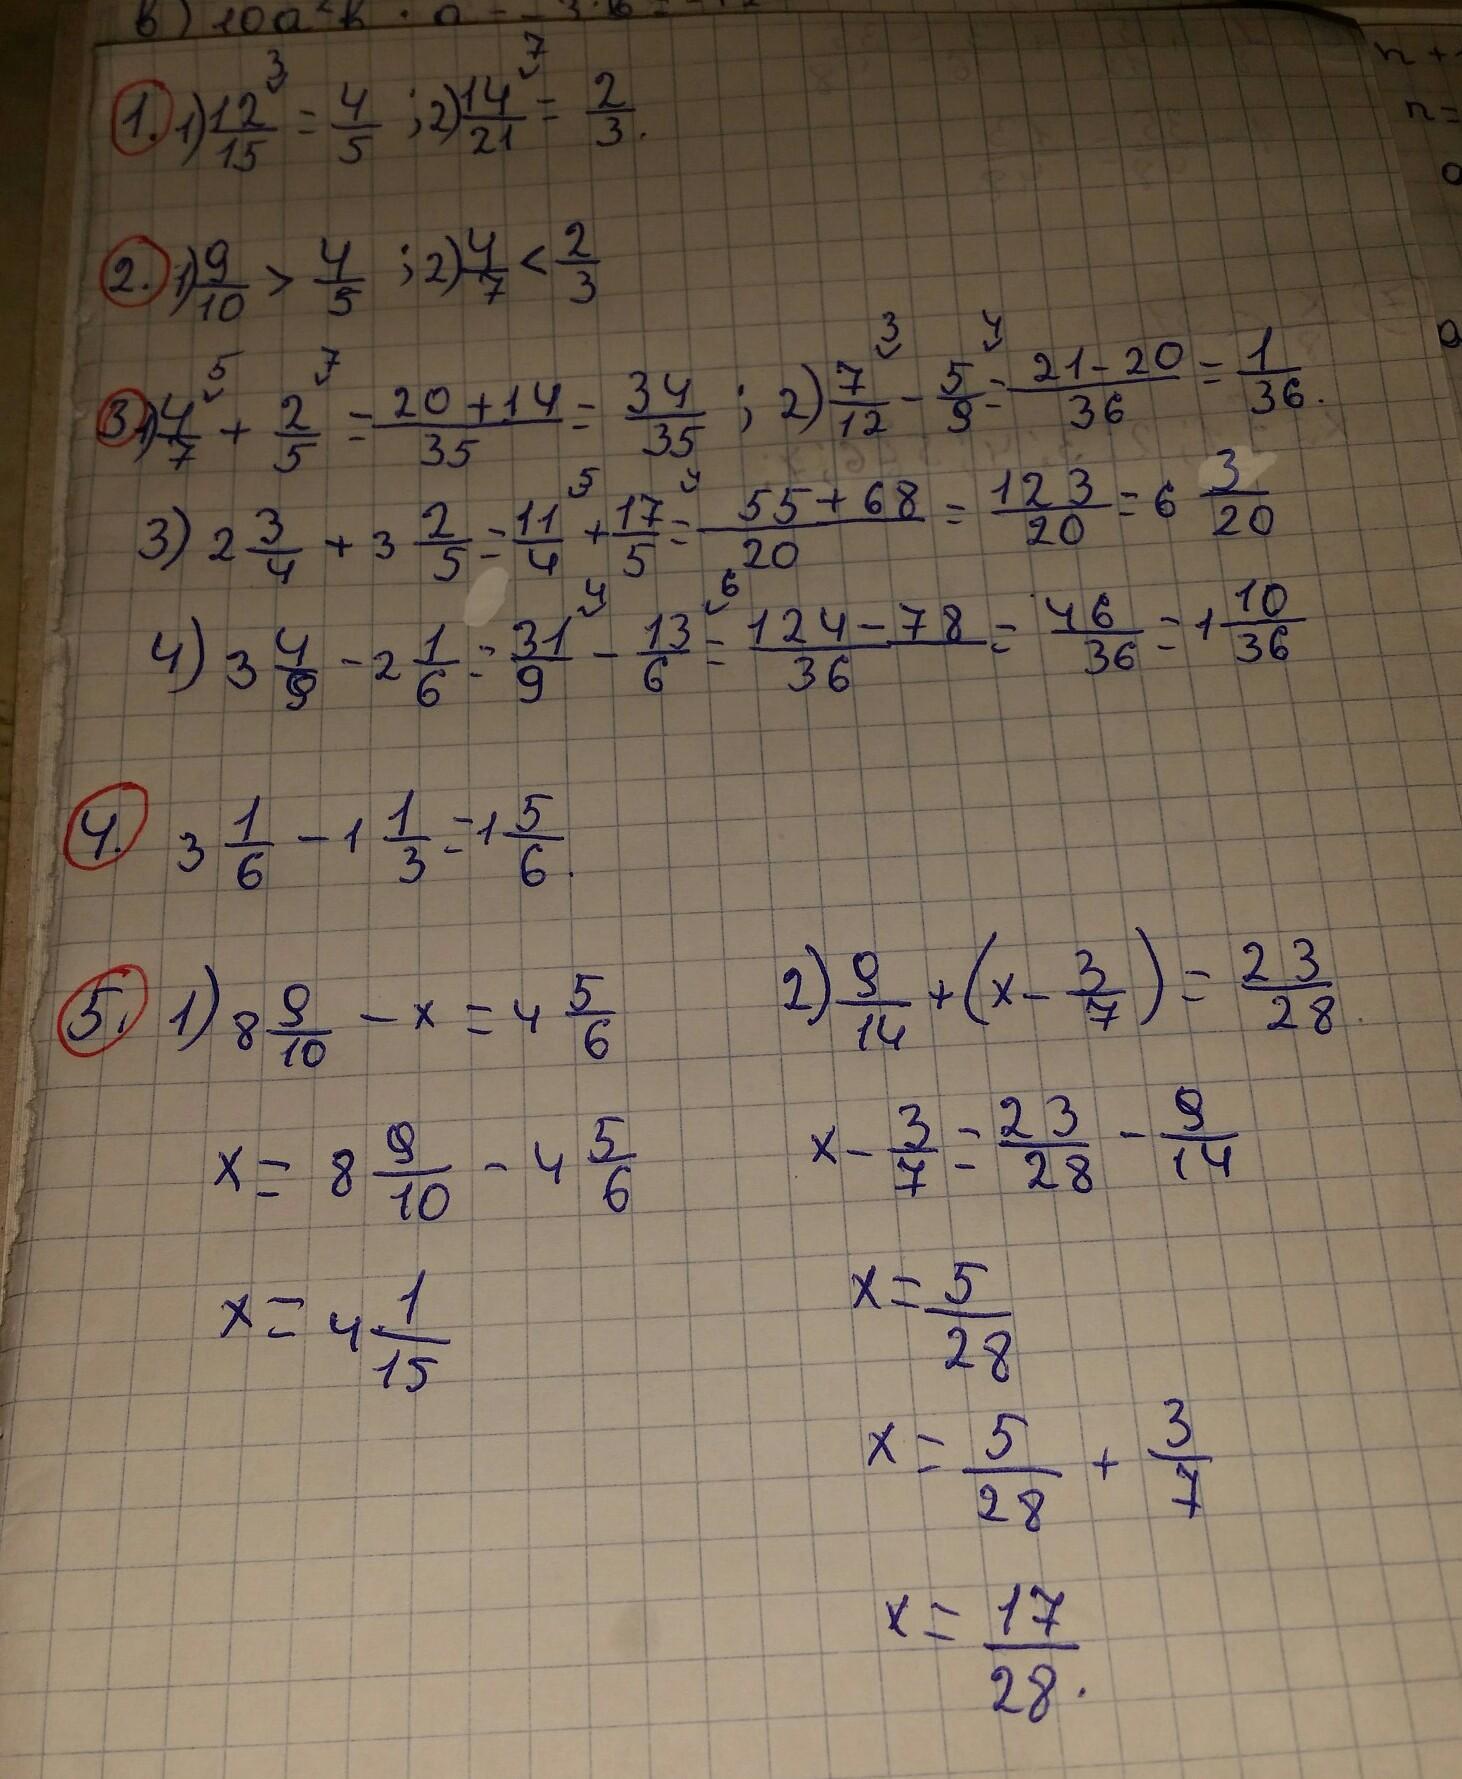 в) 10a²b · a
1. 1) 12/15 ³ = 4/5 ; 2) 14/21 ⁷ = 2/3.
2. 1) 9/10 > 4/5 ; 2) 4/7 < 2/3
3. 1) 4/7 ⁵ + 2/5 ⁷ = (20+14)/35 = 34/35 ; 2) 7/12 ³ - 5/9 ⁴ = (21-20)/36 = 1/36.
3) 2 3/4 + 3 2/5 = 11/4 ⁵ + 17/5 ⁴ = (55+68)/20 = 123/20 = 6 3/20
4) 3 4/9 - 2 1/6 = 31/9 ⁴ - 13/6 ⁶ = (124-78)/36 = 46/36 = 1 10/36
4. 3 1/6 - 1 1/3 = 1 5/6.
5. 1) 8 9/10 - x = 4 5/6
x = 8 9/10 - 4 5/6
x = 4 1/15
2) 9/14 + (x - 3/7) = 23/28.
x - 3/7 = 23/28 - 9/14
x = 5/28
x = 5/28 + 3/7
x = 17/28.
n +
n =